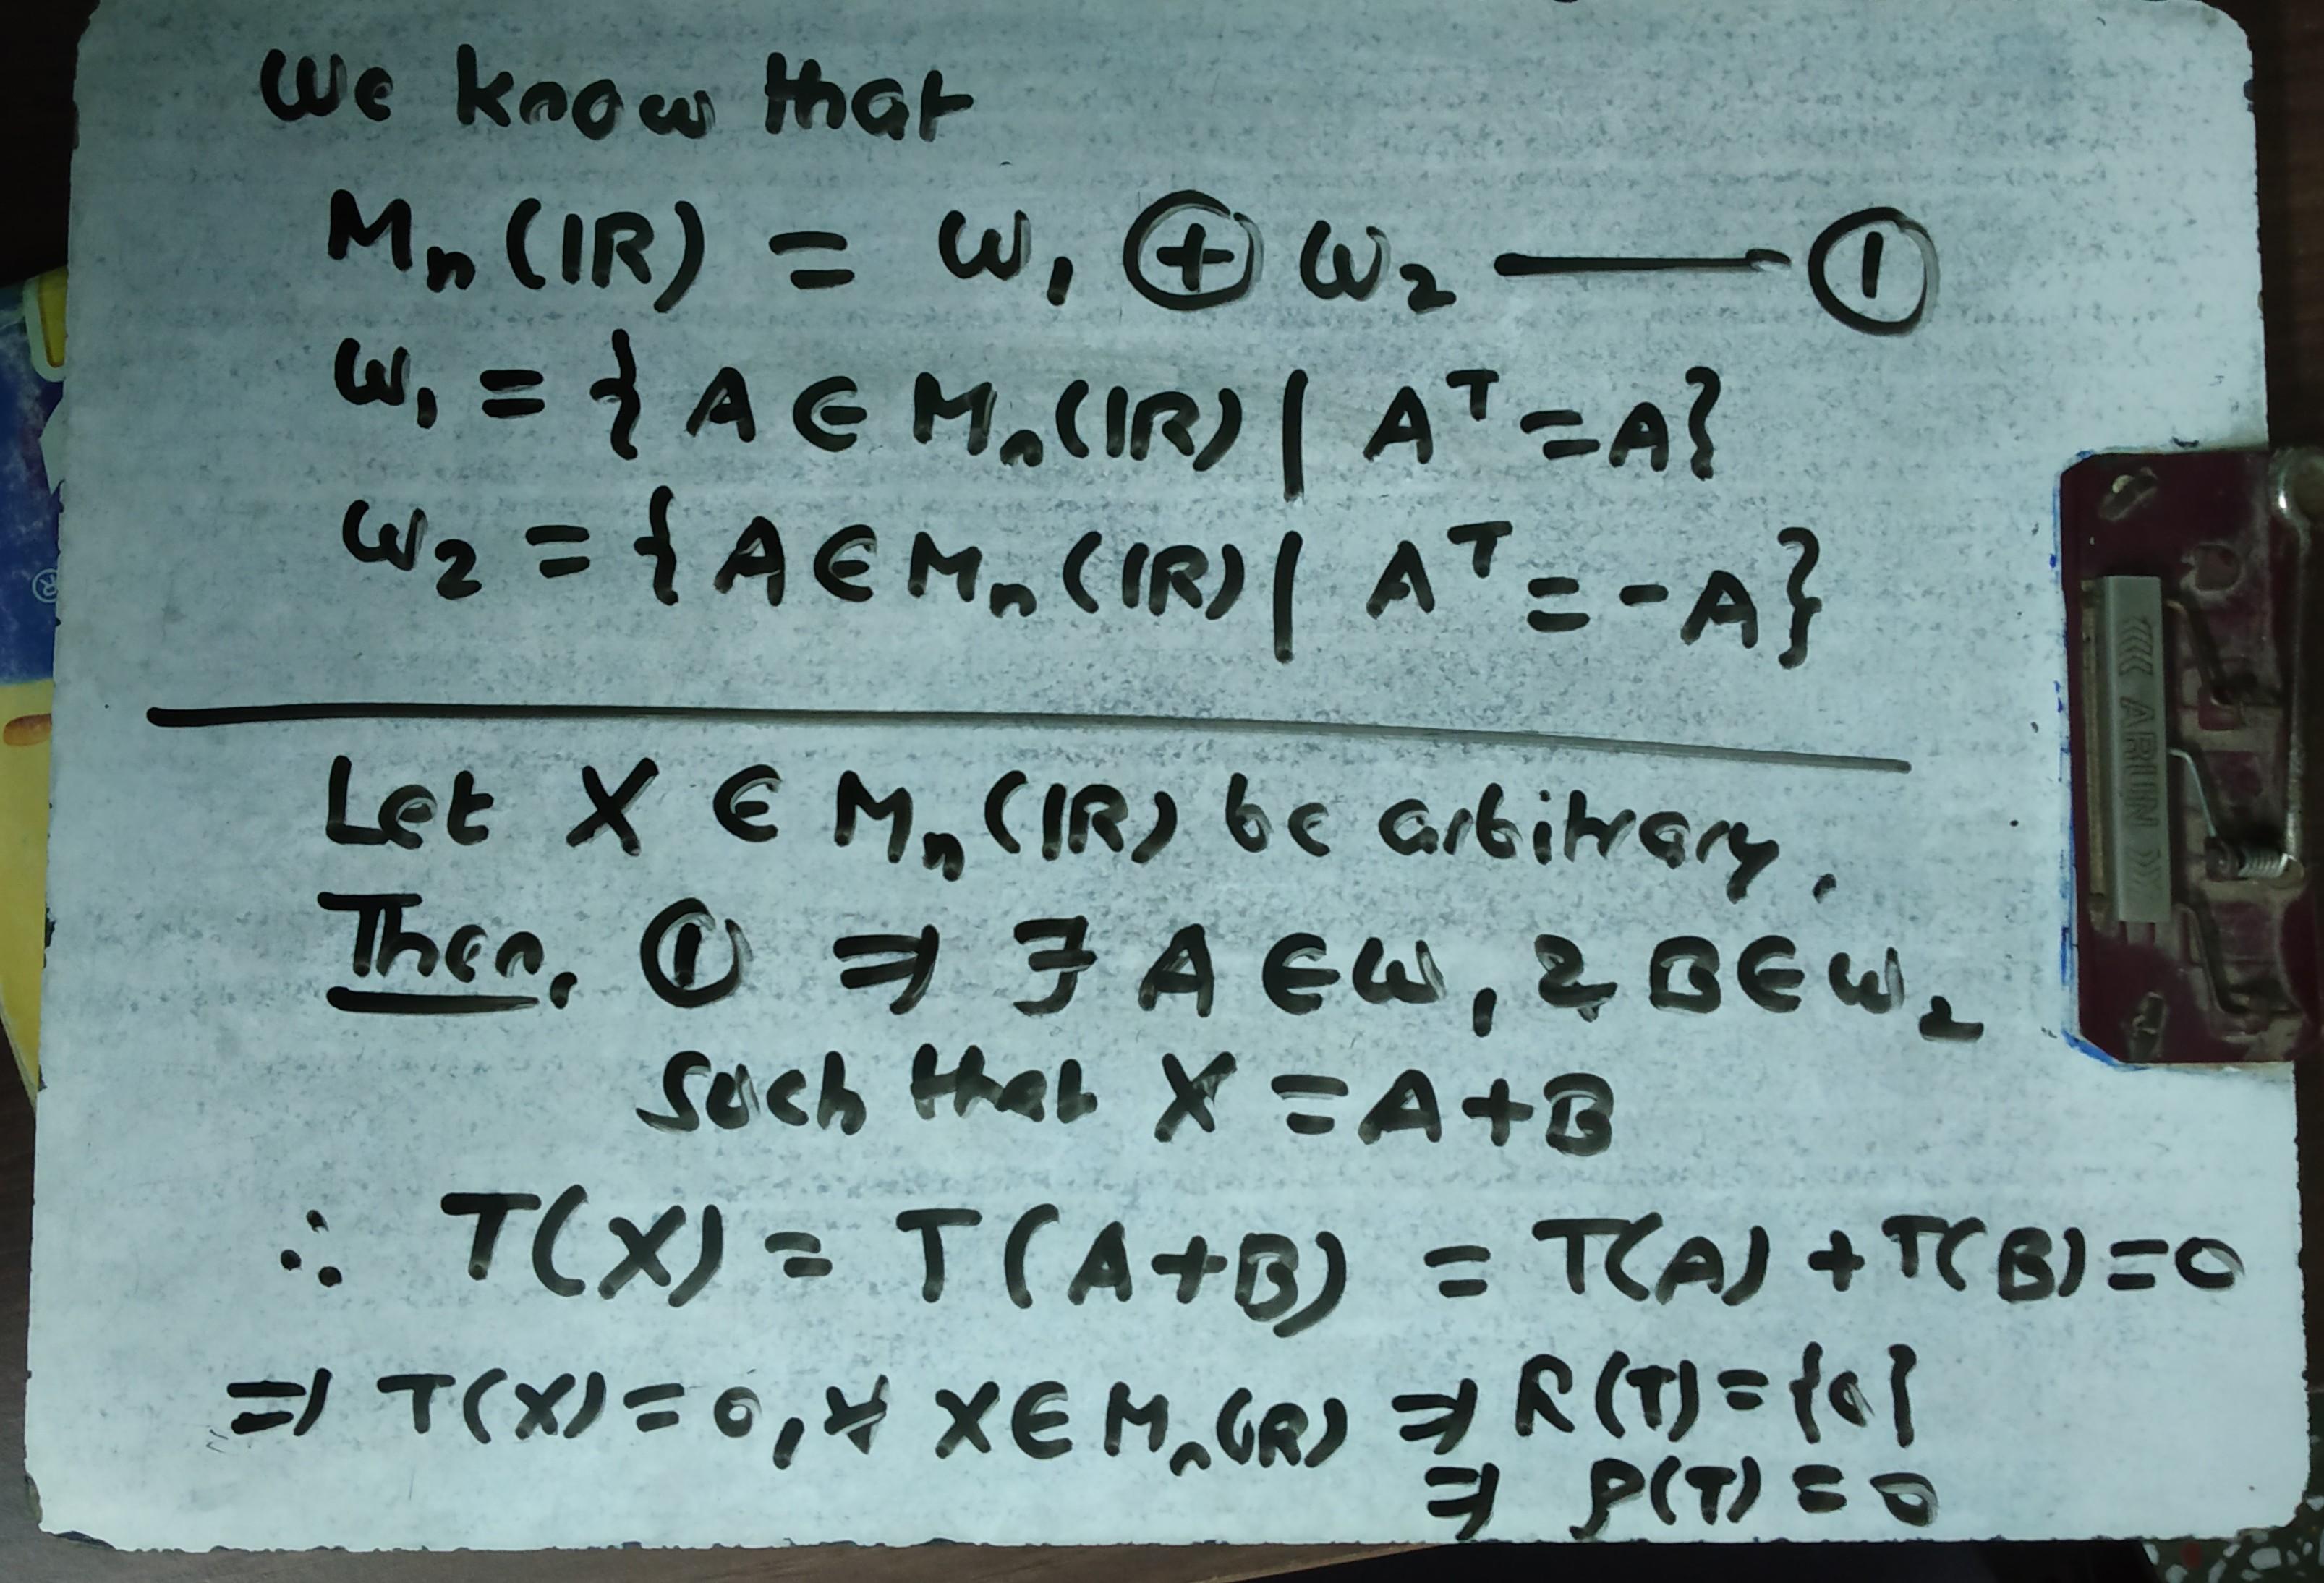 We know that
Mₙ(ℝ) = W₁ ⊕ W₂ —— ①
W₁ = { A ∈ Mₙ(ℝ) | Aᵀ = A}
W₂ = { A ∈ Mₙ(ℝ) | Aᵀ = -A}
Let X ∈ Mₙ(ℝ) be arbitrary.
Then, ① ⇒ ∃ A ∈ W₁ & B ∈ W₂
such that X = A+B
∴ T(X) = T(A+B) = T(A) + T(B) = 0
⇒ T(X) = 0, ∀ X ∈ Mₙ(ℝ) ⇒ R(T) = {0}
⇒ ρ(T) = 0
ARUN
®